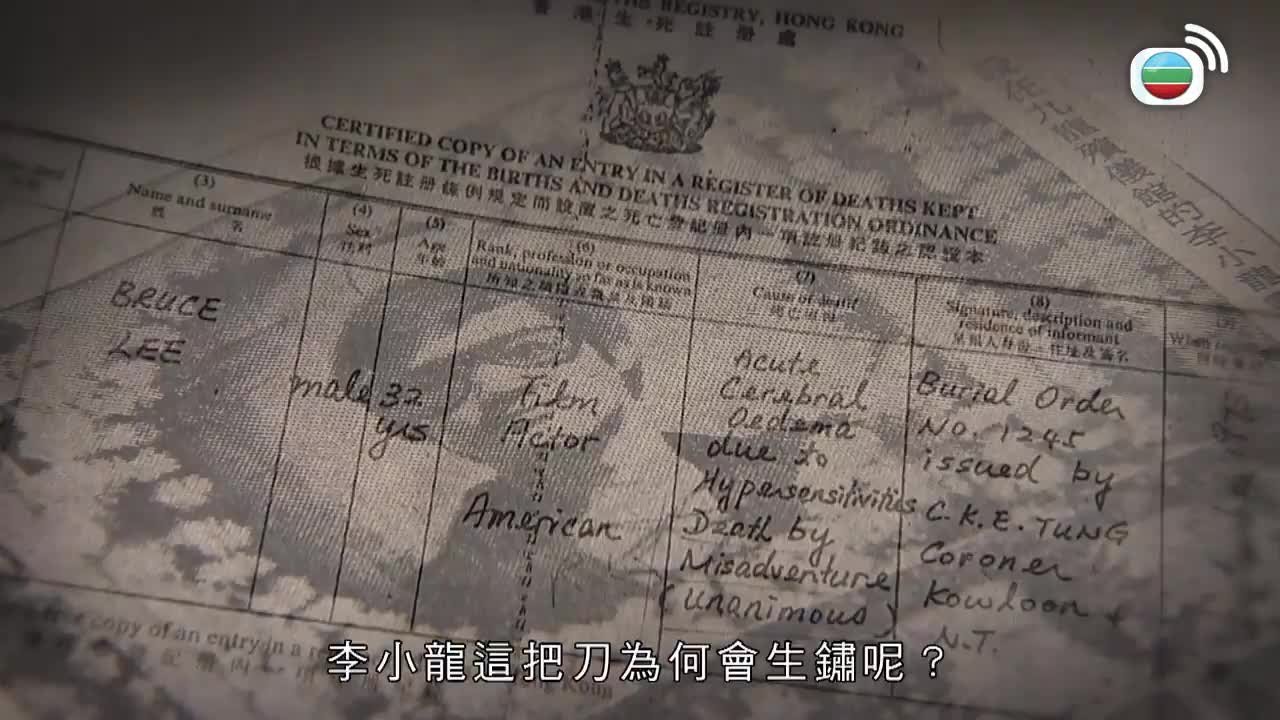 THS REGISTRY, HONG KONG
香港生死註冊處
CERTIFIED COPY OF AN ENTRY IN A REGISTER OF DEATHS KEPT
IN TERMS OF THE BIRTHS AND DEATHS REGISTRATION ORDINANCE
根據生死註册條例規定而設置之死亡登記册內一項註册記錄之認證本
(3)
Name and surname
姓名
(4)
Sex
性別
(5)
Age
年齡
(6)
Rank, profession or occupation
and nationality so far as is known
(7)
Cause of death
死亡原因
(8)
Signature, description and
residence of informant
BRUCE
LEE
male
32
yrs
Film
Actor
American
Acute
Cerebral
Oedema
due to
Hypersensitivities
Death by
Misadventure
(unanimous)
Burial Order
No. 1245
issued by
C.K.E. TUNG
Coroner
Kowloon &
N.T.
copy of an entry in a
李小龍這把刀為何會生鏽呢？